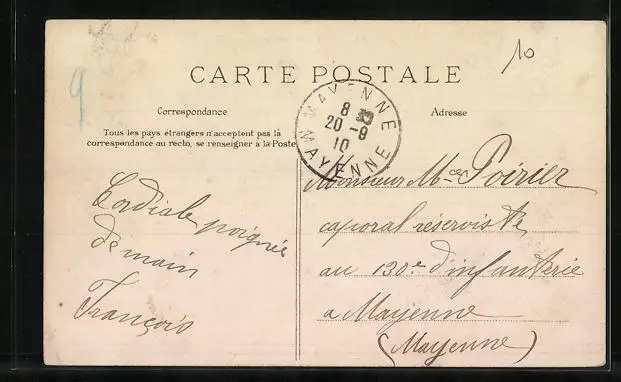 10
9
CARTE POSTALE
Correspondance
Adresse
Tous les pays étrangers n'acceptent pas là
correspondance au recto, se renseigner à la Poste
MAYENNE
8
20 -9
10
MAYENNE
Cordiale poignée
de main
François
Monsieur Mce Poirier
caporal réserviste
au 130e d'infanterie
a Mayenne
(Mayenne)